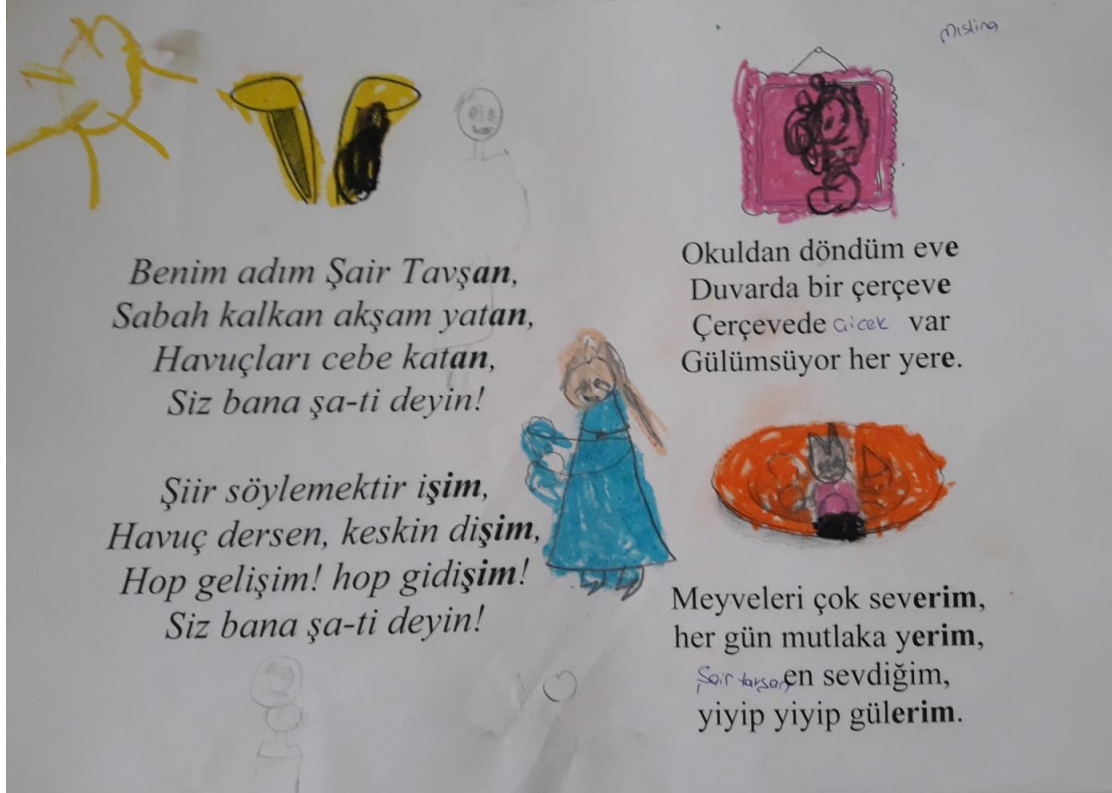 Mislina
Benim adım Şair Tavşan,
Sabah kalkan akşam yatan,
Havuçları cebe katan,
Siz bana şa-ti deyin!
Şiir söylemektir işim,
Havuç dersen, keskin dişim,
Hop gelişim! hop gidişim!
Siz bana şa-ti deyin!
Okuldan döndüm eve
Duvarda bir çerçeve
Çerçevede cicek var
Gülümsüyor her yere.
Meyveleri çok severim,
her gün mutlaka yerim,
Şair tavşan en sevdiğim,
yiyip yiyip gülerim.